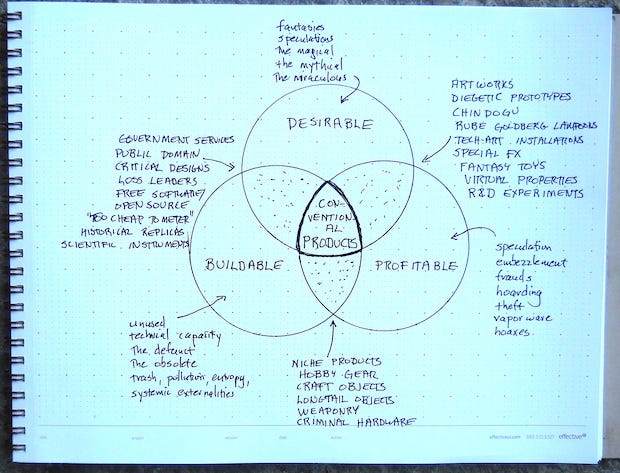 fantasies
speculations
The magical
the mythical
The miraculous
DESIRABLE
ARTWORKS
DIEGETIC PROTOTYPES
CHINDOGU
RUBE GOLDBERG LAMPOONS
TECH-ART INSTALLATIONS
SPECIAL FX
FANTASY TOYS
VIRTUAL PROPERTIES
R&D EXPERIMENTS
GOVERNMENT SERVICES
PUBLIC DOMAIN
CRITICAL DESIGNS
LOSS LEADERS
FREE SOFTWARE/
OPEN SOURCE
"TOO CHEAP TO METER"
HISTORICAL REPLICAS
SCIENTIFIC INSTRUMENTS
CON-
VENTION-
AL
PRODUCTS
BUILDABLE
PROFITABLE
speculation
embezzlement
frauds
hoarding
theft
vaporware
hoaxes
unused
technical capacity
The defunct
The obsolete
trash, pollution, entropy,
systemic externalities
NICHE PRODUCTS
HOBBY GEAR
CRAFT OBJECTS
LONGTAIL OBJECTS
WEAPONRY
CRIMINAL HARDWARE
effective